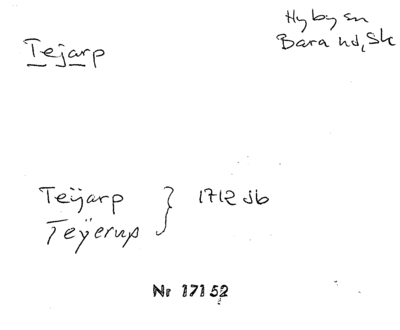 Tejarp
Hyby sn
Bara hd, Sk
Teÿarp } 1712 Jb
Teÿerup
Nr 17152